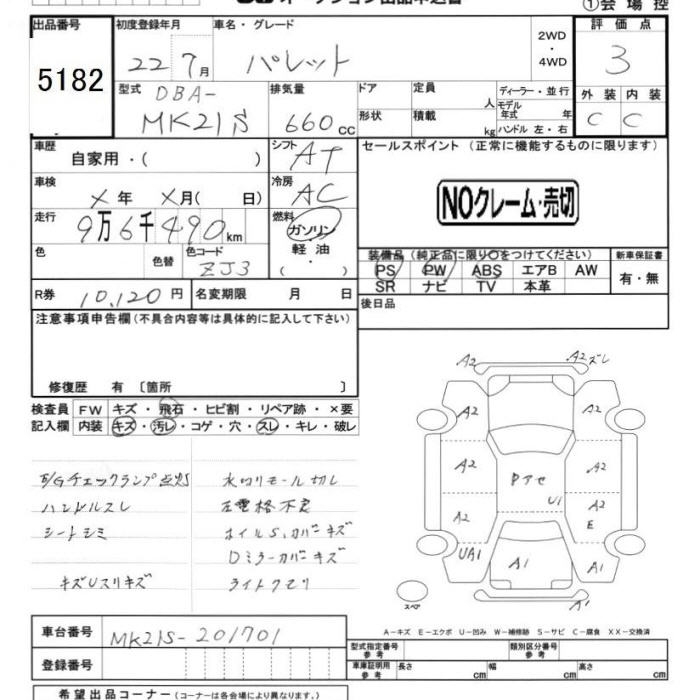 ①会場控
出品番号 初度登録年月 車名・グレード 2WD・4WD 評価点
5182 22 7月 パレット 3
型式 DBA- 排気量 ドア 定員 人 ディーラー・並行 外装 内装
MK21S 660cc 形状 積載 kg モデル年式 年 C C
ハンドル 左・右
車歴 自家用・( ) シフト AT セールスポイント (正常に機能するものに限ります)
車検 ×年 ×月( 日) 冷房 AC
NOクレーム・売切
走行 9万6千490km 燃料 ガソリン 軽油・( )
色 色替 色コード ZJ3
装備品 (純正品に限り○をつけてください) 新車保証書
PS PW ABS エアB AW 有・無
SR ナビ TV 本革
R券 10,120円 名変期限 月 日
後日品
注意事項申告欄 (不具合内容等は具体的に記入して下さい)
修復歴 有 〔箇所 〕
検査員 FW キズ・飛石・ヒビ割・リペア跡・×要
記入欄 内装 キズ・汚レ・コゲ・穴・スレ・キレ・破レ
E/Gチェックランプ点灯 水切リモール切レ
ハンドルスレ 左電格不良
シートシミ ホイルS,カバーキズ
Dミラーカバーキズ
キズUスリキズ ライトクモリ
A2 A2ズレ
A2 A2
A2 Pアセ A2
A2 U1 A2 E
UA1 A1 A1
スペア
A-キズ E-エクボ U-凹み W-補修跡 S-サビ C-腐食 XX-交換済
車台番号 MK21S-201701
型式指定番号 参考 類別区分番号 参考
登録番号 車庫証明用 参考 長さ cm 幅 cm 高さ cm
希望出品コーナー (コーナーは各会場により異なります。)